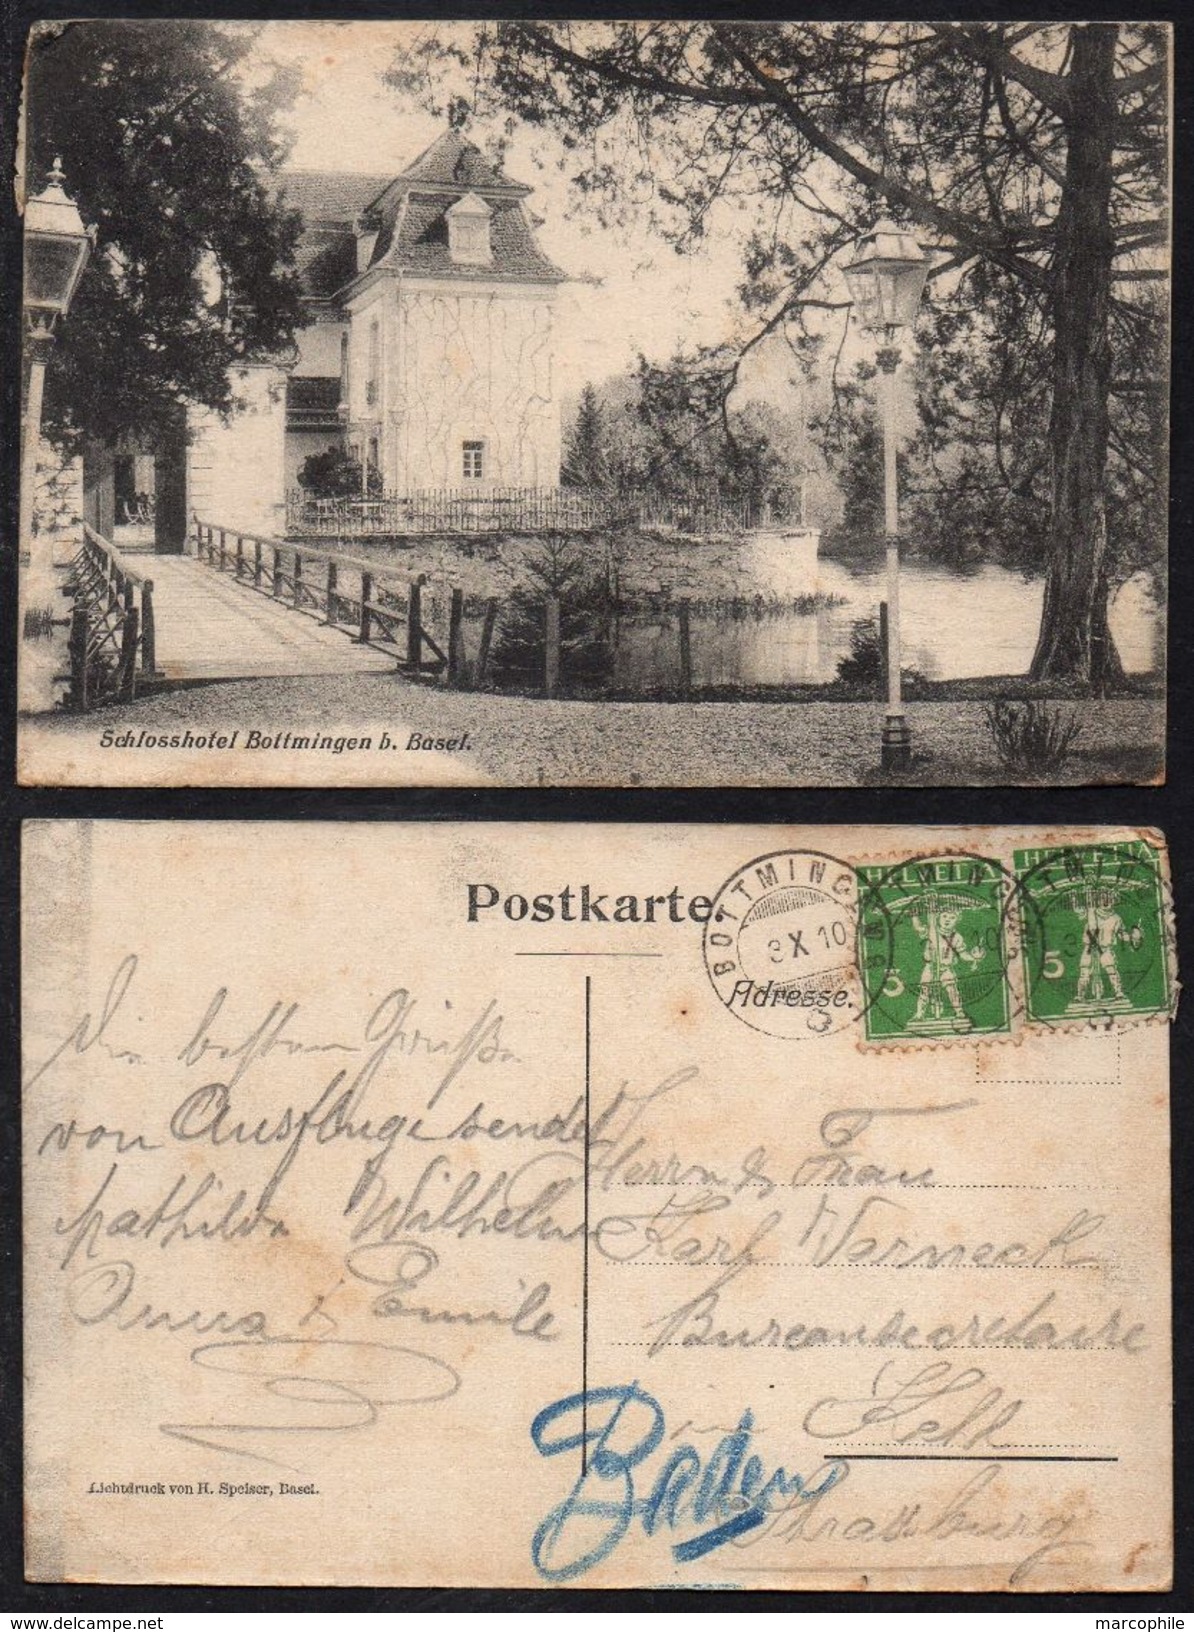 Schlosshotel Bottmingen b. Basel.
Postkarte.
Adresse.
BOTTMINGEN
3 X 10
HELVETIA
5
BOTTMINGEN
3 X 10
HELVETIA
5
Die besten Grüße
von Ausfluge sendet
Mathilda Wilhelm
Anna & Emile
Herrn & Frau
Karl Warneck
Bureausecretaire
in Kehl
Baden
Strassburg
Lichtdruck von H. Speiser, Basel.
marcophile